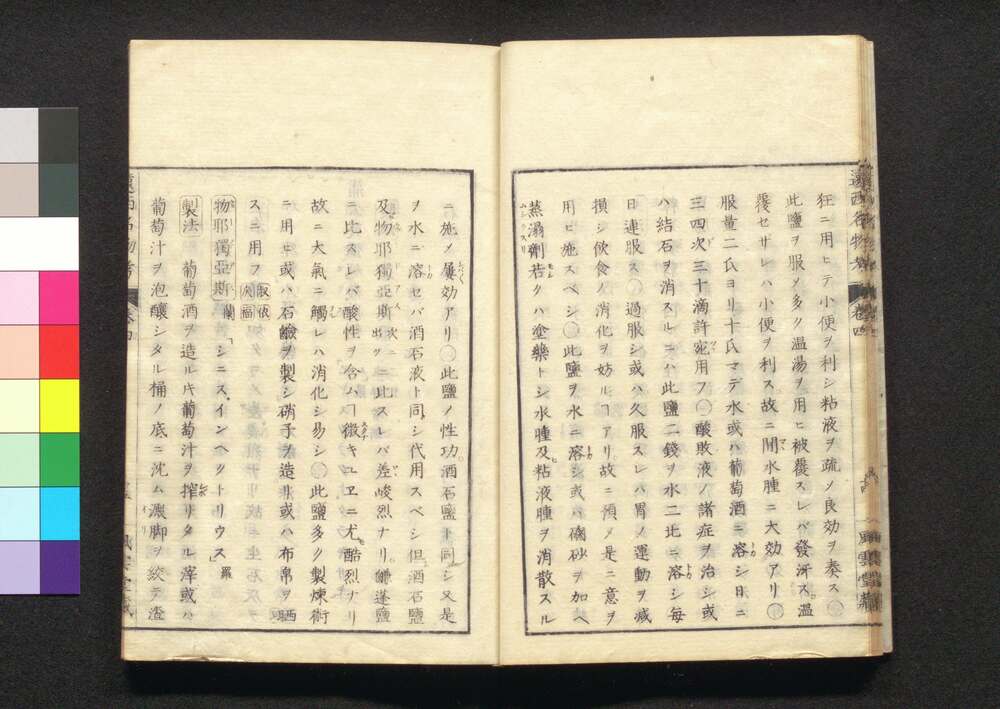 狂ニ用ヒテ小便ヲ利シ粘液ヲ疏ソ良効ヲ奏ス○
此鹽ヲ服ソ多ク温湯ヲ用ヒ被覆スレバ發汗ス温
覆セサレハ小便ヲ利ス故ニ間水腫ニ大効アリ○
服量二氏ヨリ十氏マデ水或ハ葡萄酒ニ溶シ日ニ
三四次三十滴許宛用フ○酸敗液ノ諸症ヲ治シ或
ハ結石ヲ消スルニハ此鹽二錢ヲ水二比ニ溶シ毎
日連服ス○過服シ或ハ久服スレハ胃ノ運動ヲ減
損シ飲食ノ消化ヲ妨ルヿアリ故ニ預メ是ニ意ヲ
用ヒ施スベシ○此鹽ヲ水ニ溶シ或ハ磠砂ヲ加ヘ
蒸溻劑若クハ塗藥トシ水腫及粘液腫ヲ消散スル
遠西名物考 卷四
風雲堂藏
ニ施メ屢効アリ○此鹽ノ性功酒石鹽ト同シ又是
ヲ水ニ溶セバ酒石液ト同シ代用スベシ但酒石鹽
及物耶獨亞斯次ニ出ツニ比スレバ差峻烈ナリ鹻蓬鹽
ニ比スレバ酸性ヲ含ムヿ微キユヱニ尤酷烈ナリ
故ニ大氣ニ觸レハ消化シ易シ○此鹽多ク製煉術
ニ用ヒ或ハ石鹼ヲ製シ硝子ヲ造リ或ハ布帛ヲ晒
スニ用フ
物耶獨亞斯 蘭「シニスインヘクトリウス」羅
製法 葡萄酒ヲ造ル片葡萄汁ヲ搾リタル滓或ハ
葡萄汁ヲ泡釀シタル桶ノ底ニ沈ム濃脚ヲ絞テ渣